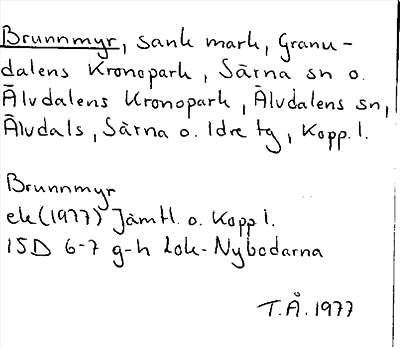 Brunnmyr, sank mark, Granu-
dalens Kronopark, Särna sn o.
Älvdalens Kronopark, Älvdalens sn,
Älvdals, Särna o. Idre tg, Kopp. l.
Brunnmyr
ek (1977) Jämtl. o. Kopp l.
15D 6-7 g-h Lok-Nybodarna
T.Å. 1977